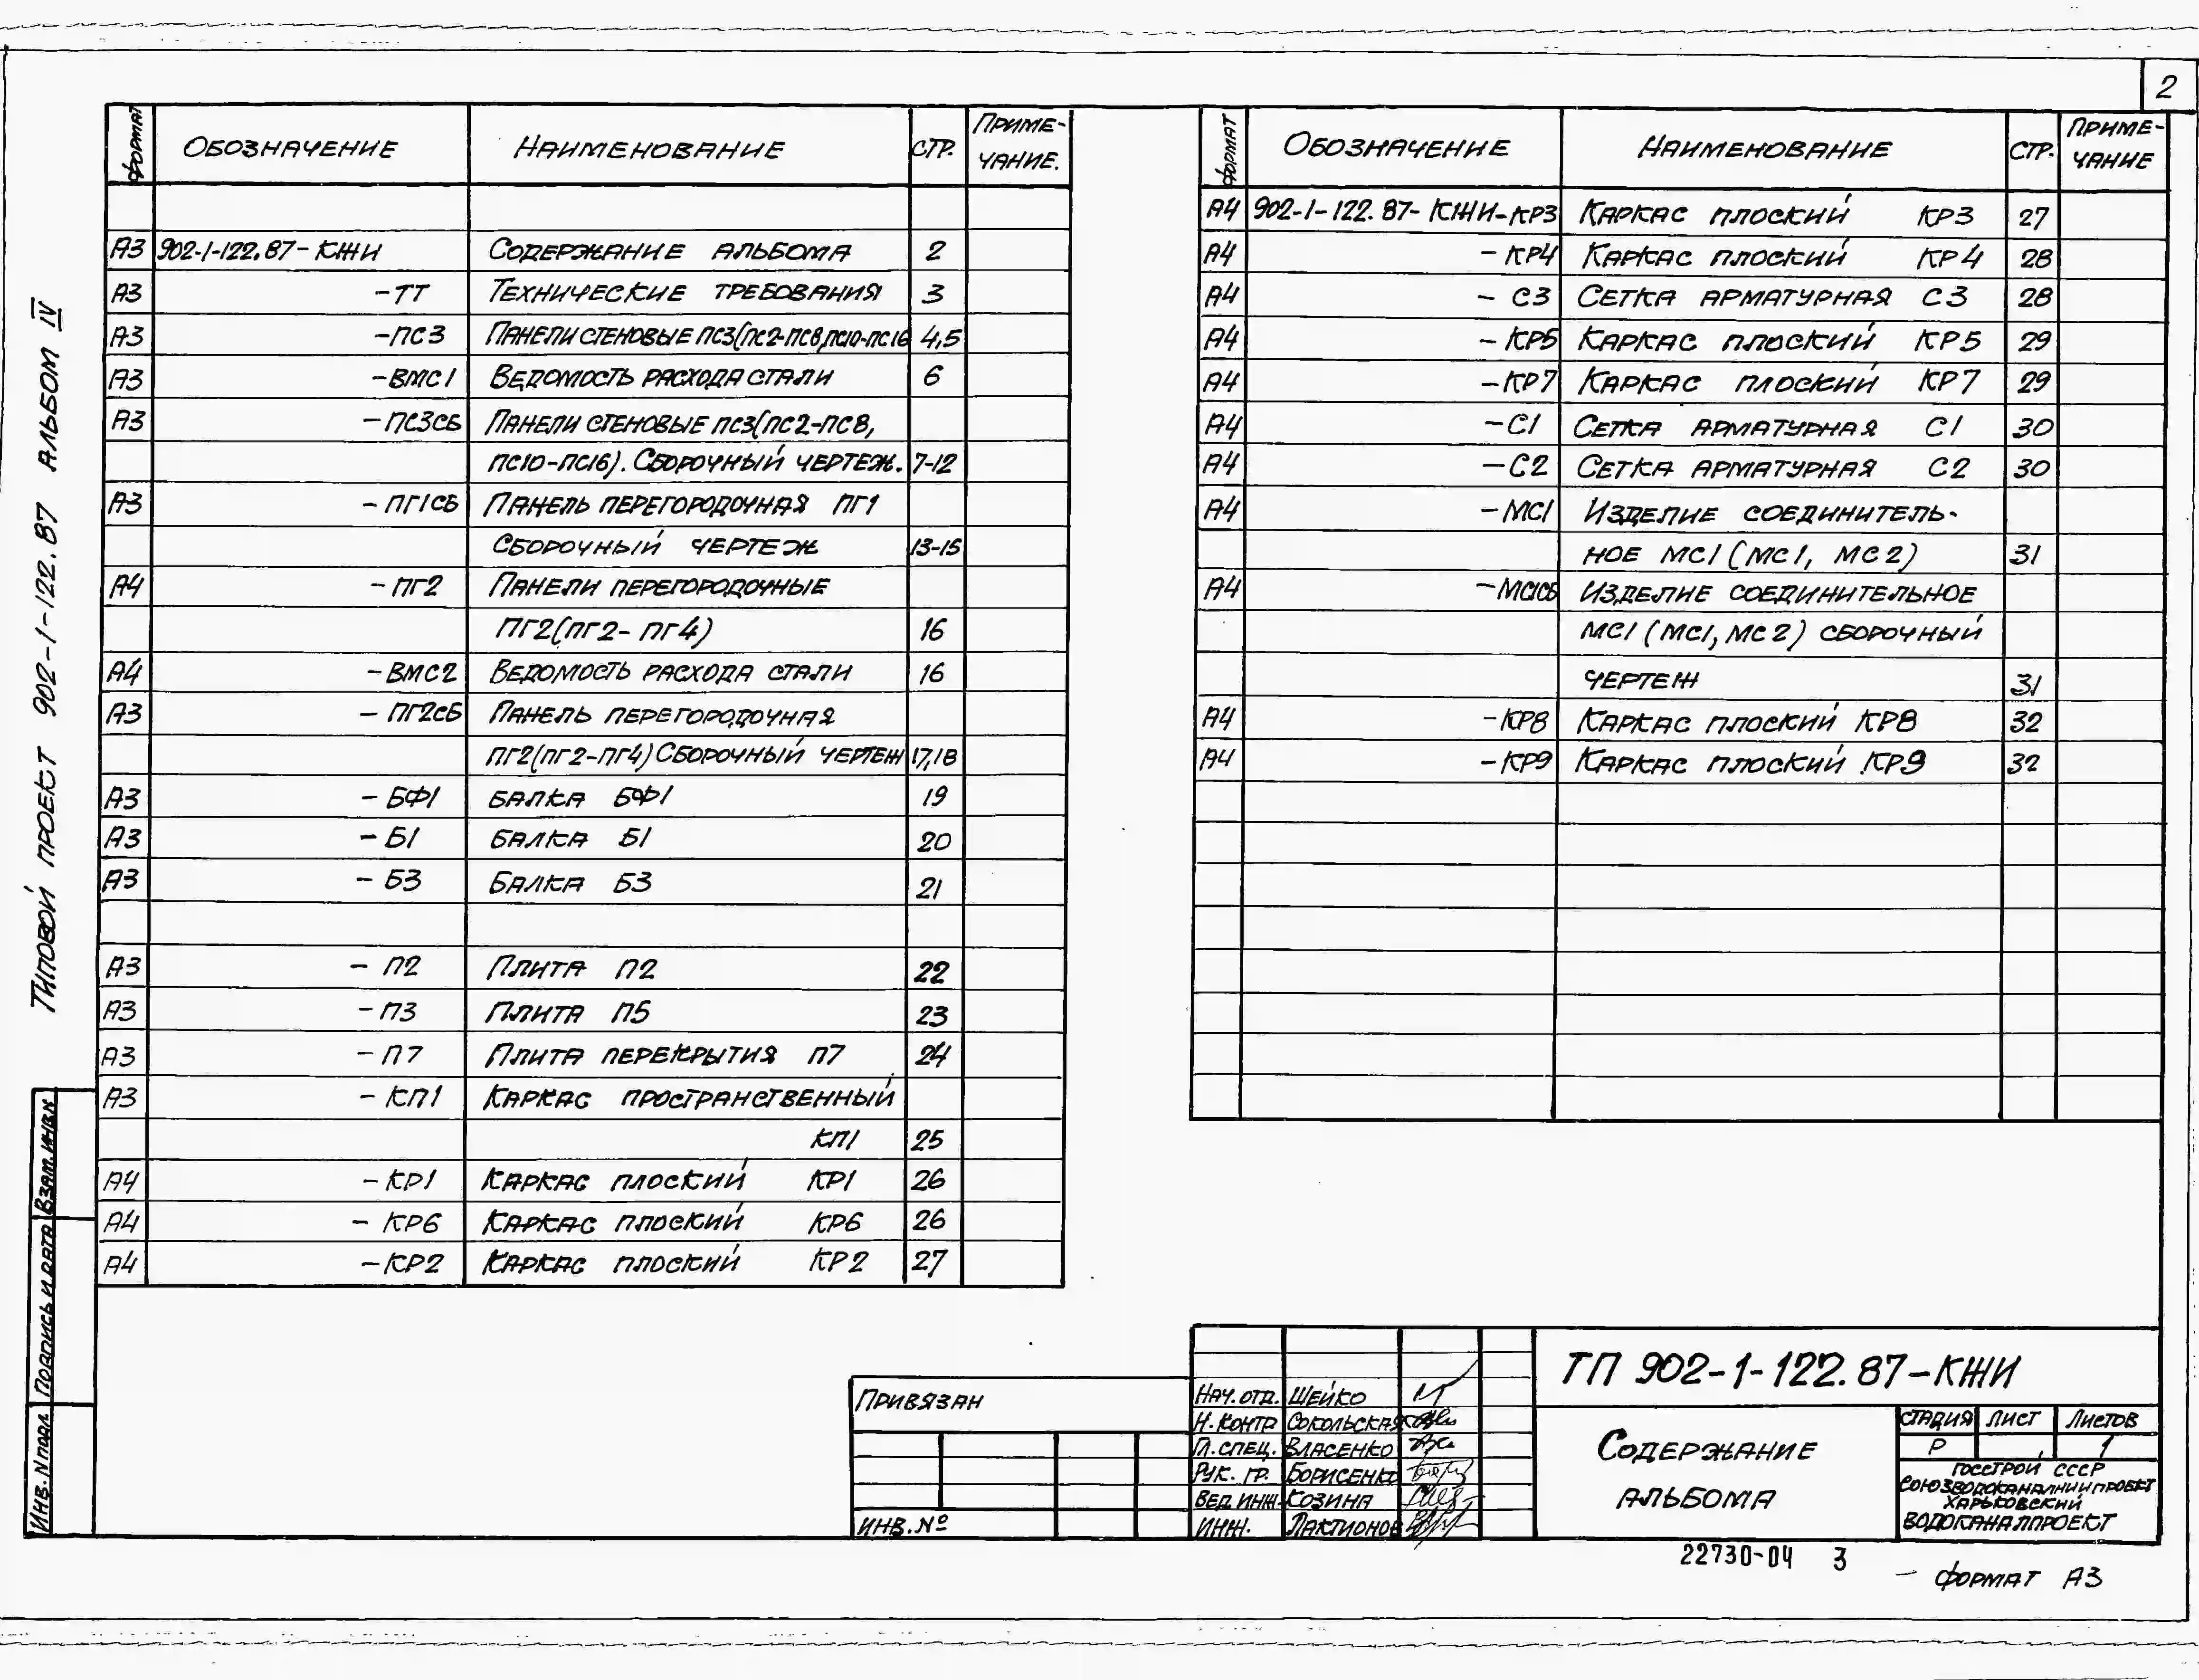 2
Типовой проект 902-1-122.87 Альбом IV
Формат Обозначение Наименование Стр. Приме-
чание.
А3 902-1-122.87-КЖИ Содержание альбома 2
А3 -ТТ Технические требования 3
А3 -ПС3 Панели стеновые ПС3(ПС2-ПС8,ПС10-ПС16 4,5
А3 -ВМС1 Ведомость расхода стали 6
А3 -ПС3СБ Панели стеновые ПС3(ПС2-ПС8,
ПС10-ПС16). Сборочный чертеж. 7-12
А3 -ПГ1СБ Панель перегородочная ПГ1
Сборочный чертеж 13-15
А4 -ПГ2 Панели перегородочные
ПГ2(ПГ2-ПГ4) 16
А4 -ВМС2 Ведомость расхода стали 16
А3 -ПГ2СБ Панель перегородочная
ПГ2(ПГ2-ПГ4) Сборочный чертеж 17,18
А3 -БФ1 Балка БФ1 19
А3 -Б1 Балка Б1 20
А3 -Б3 Балка Б3 21
А3 -П2 Плита П2 22
А3 -П3 Плита П5 23
А3 -П7 Плита перекрытия П7 24
А3 -КП1 Каркас пространственный
КП1 25
А4 -КР1 Каркас плоский КР1 26
А4 -КР6 Каркас плоский КР6 26
А4 -КР2 Каркас плоский КР2 27
Формат Обозначение Наименование Стр. Приме-
чание
А4 902-1-122.87-КЖИ-КР3 Каркас плоский КР3 27
А4 -КР4 Каркас плоский КР4 28
А4 -С3 Сетка арматурная С3 28
А4 -КР5 Каркас плоский КР5 29
А4 -КР7 Каркас плоский КР7 29
А4 -С1 Сетка арматурная С1 30
А4 -С2 Сетка арматурная С2 30
А4 -МС1 Изделие соединитель-
ное МС1 (МС1, МС2) 31
А4 -МС1СБ Изделие соединительное
МС1 (МС1, МС2) сборочный
чертеж 31
А4 -КР8 Каркас плоский КР8 32
А4 -КР9 Каркас плоский КР9 32
Инв.№подл Подпись и дата Взам.инв.№
Привязан
Инв.№
Нач.отд. Шейко
Н.контр Сокольская
Гл.спец. Власенко
Рук. гр. Борисенко
Вед.инж. Козина
Инж. Лактионов
ТП 902-1-122.87-КЖИ
Содержание
альбома
Стадия Лист Листов
Р 1
Госстрой СССР
Союзводоканалниипроект
Харьковский
Водоканалпроект
22730-04 3
Формат А3